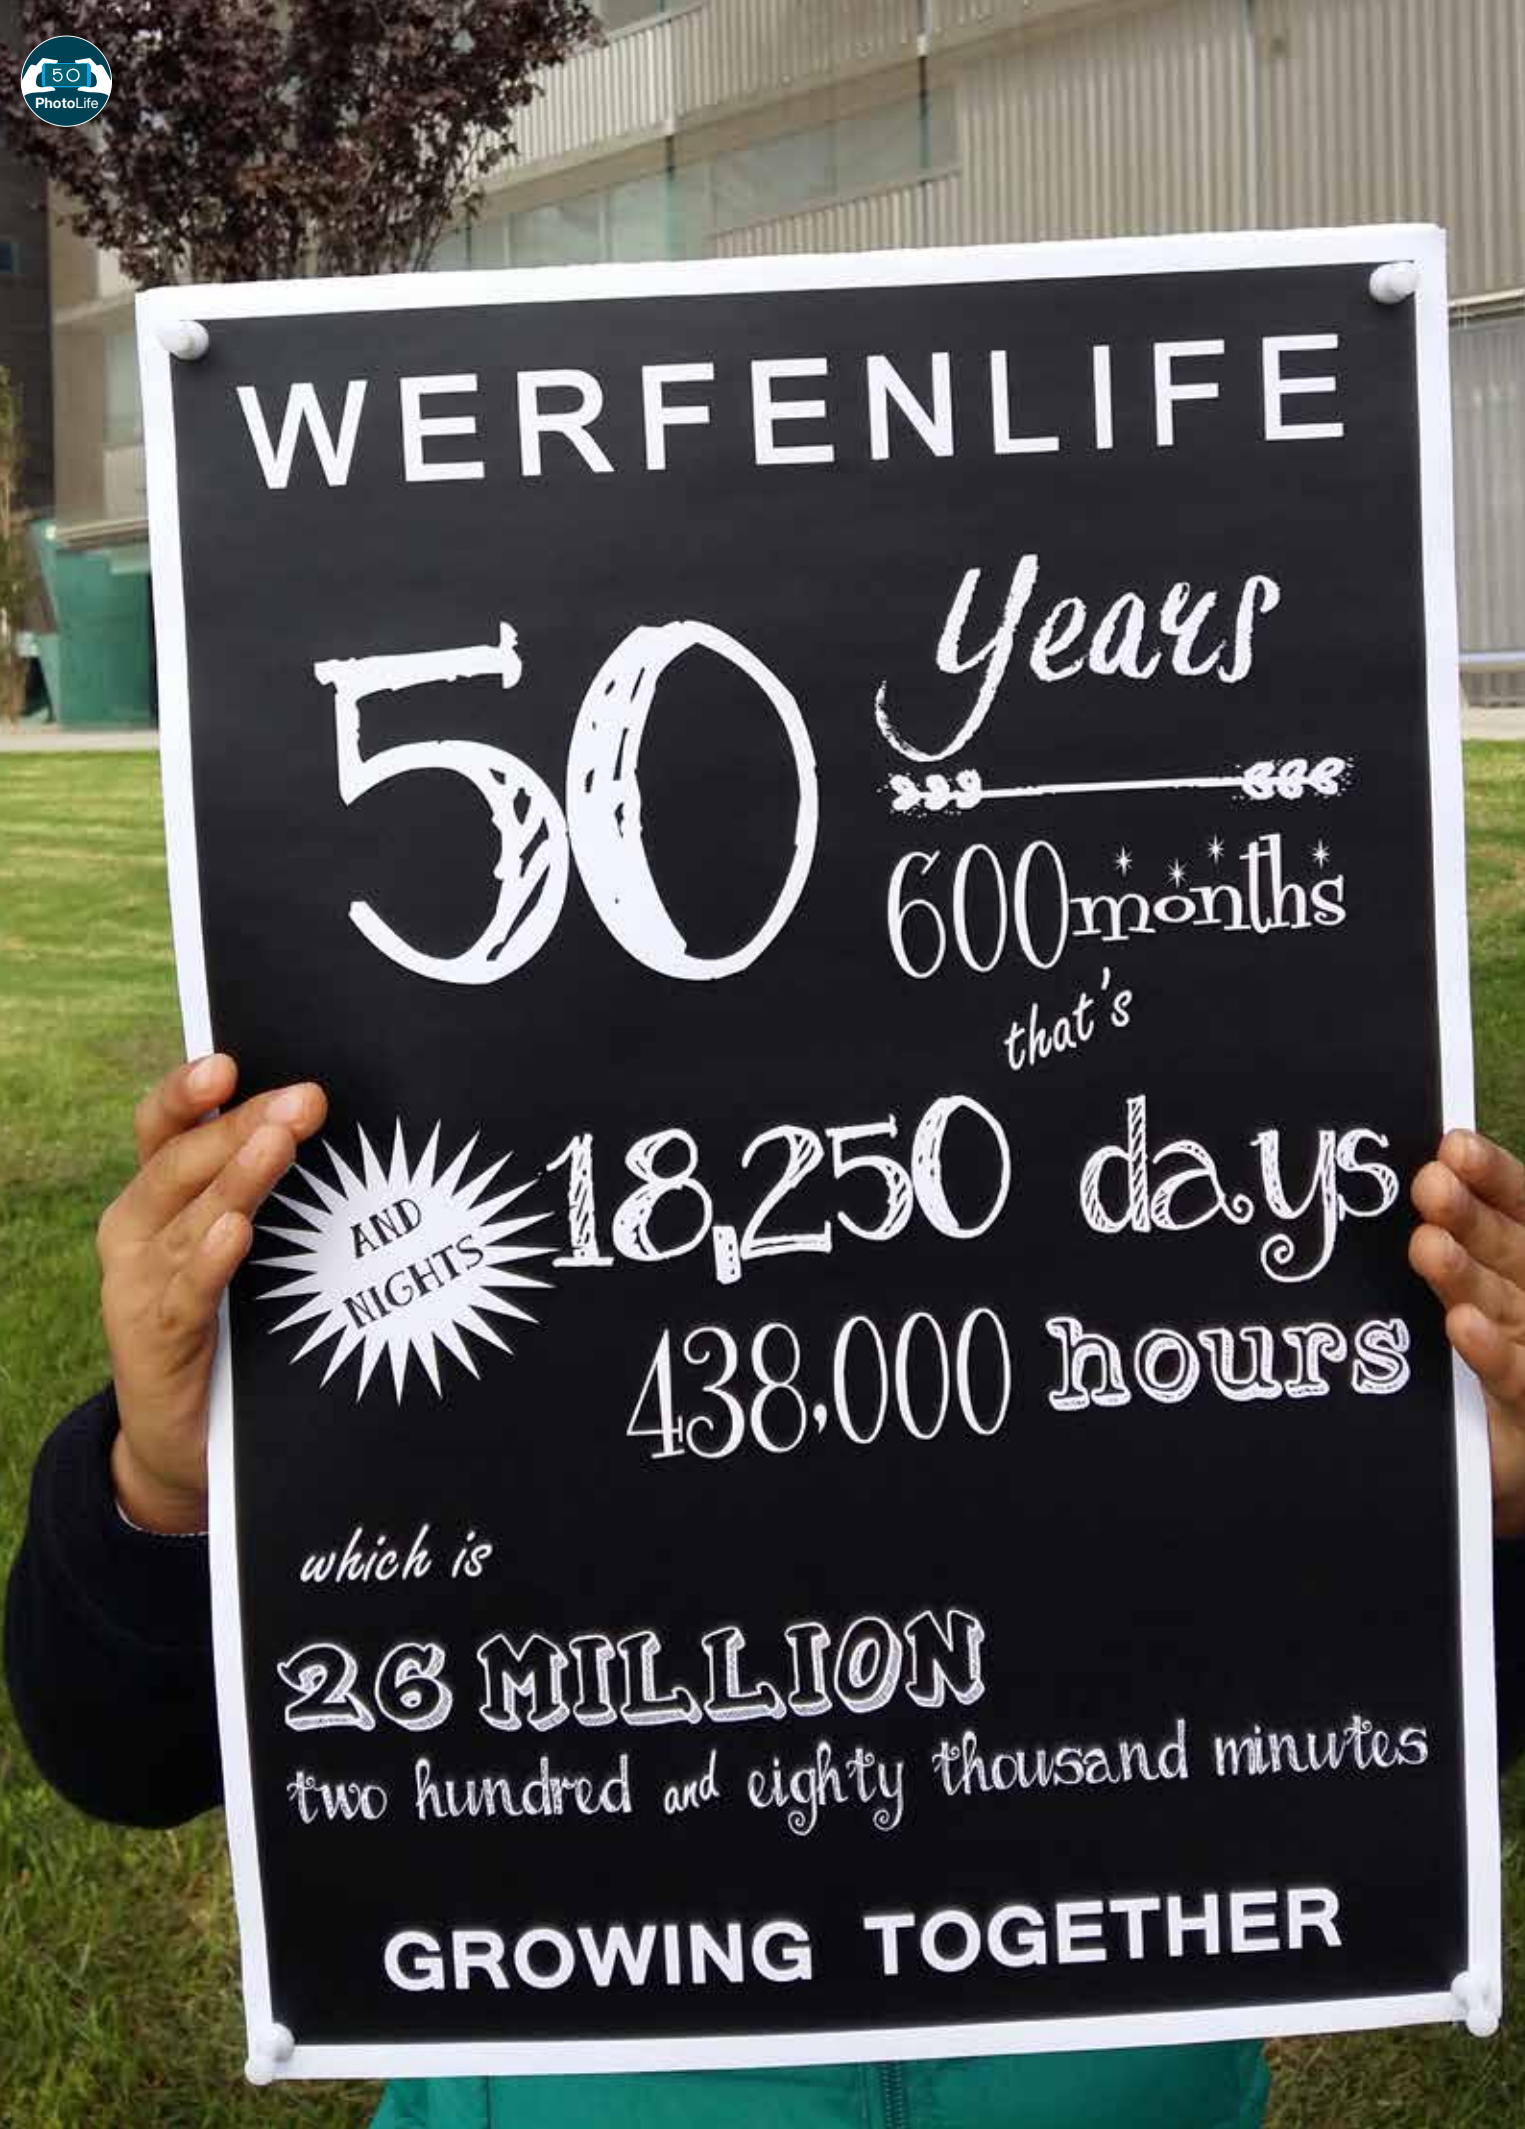 50
PhotoLife
WERFENLIFE
50 Years
600 months
that's
AND
NIGHTS
18,250 days
438,000 hours
which is
26 MILLION
two hundred and eighty thousand minutes
GROWING TOGETHER